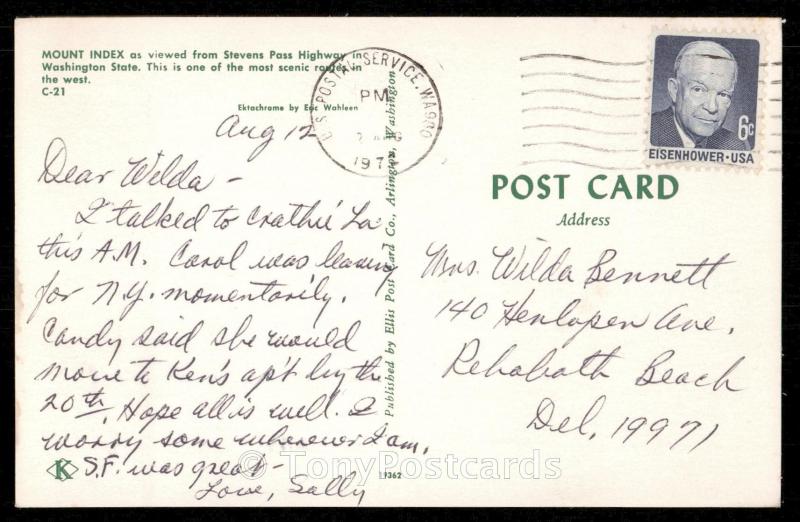 MOUNT INDEX as viewed from Stevens Pass Highway in
Washington State. This is one of the most scenic routes in
the west.
C-21
Ektachrome by Eric Wahleen
Aug 12
Dear Wilda -
I talked to Crathie La
this A.M. Carol was leaving
for N.Y. momentarily.
Candy said she would
move to Ken's ap't by the
20th. Hope all is well. I
worry some wherever I am.
S.F. was great -
Love, Sally
K
Published by Ellis Post Card Co., Arlington, Washington
19362
U.S. POSTAL SERVICE, WA 980
PM
197
6c
EISENHOWER · USA
POST CARD
Address
Mrs. Wilda Bennett
140 Henlopen Ave.
Rehoboth Beach
Del. 19971
© TonyPostcards